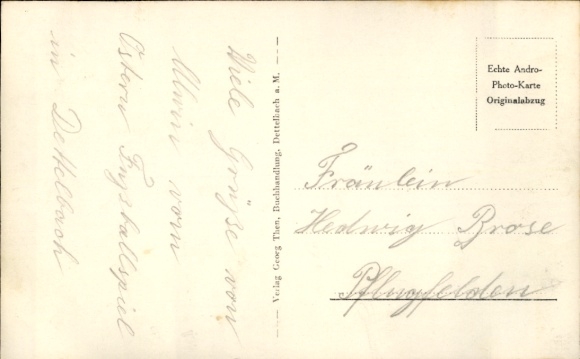 Viele Grüße von
Alwin vom
Ostern Fußballspiel
in Dettelbach
Verlag Georg Then, Buchhandlung, Dettelbach a. M.
Echte Andro-
Photo-Karte
Originalabzug
Fräulein
Hedwig Brose
Pflugfelden